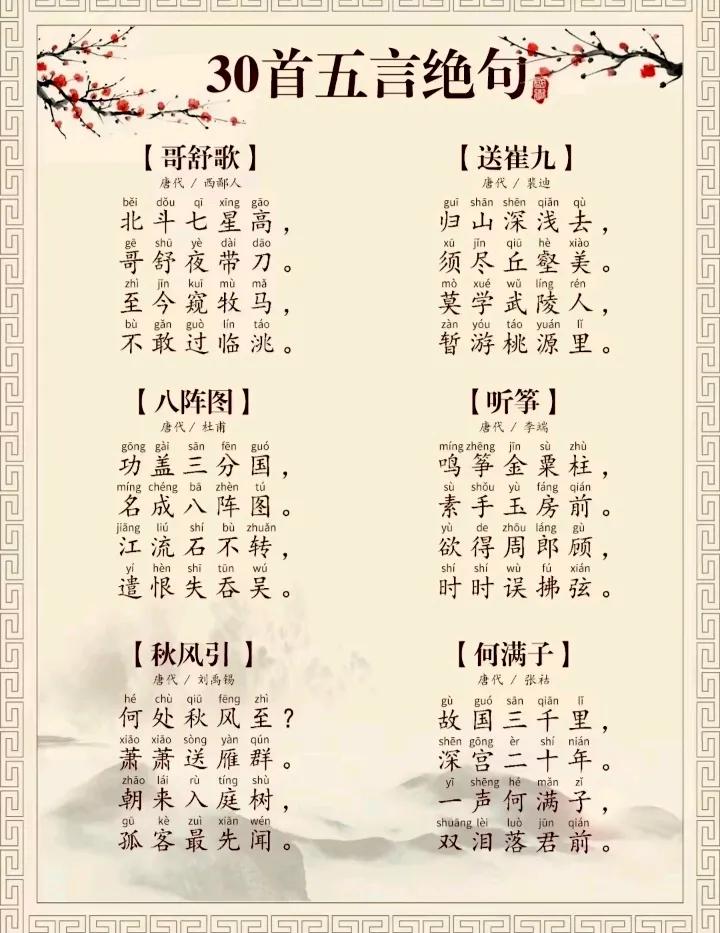 30首五言绝句
【哥舒歌】
唐代 / 西鄙人
běi dǒu qī xīng gāo
北斗七星高，
gē shū yè dài dāo
哥舒夜带刀。
zhì jīn kuī mù mǎ
至今窥牧马，
bù gǎn guò lín táo
不敢过临洮。
【送崔九】
唐代 / 裴迪
guī shān shēn qiǎn qù
归山深浅去，
xū jǐn qiū hè xiào
须尽丘壑美。
mò xué wǔ líng rén
莫学武陵人，
zàn yóu táo yuán lǐ
暂游桃源里。
【八阵图】
唐代 / 杜甫
gōng gài sān fēn guó
功盖三分国，
míng chéng bā zhèn tú
名成八阵图。
jiāng liú shí bù zhuǎn
江流石不转，
yí hèn shī tūn wú
遣恨失吞吴。
【听筝】
唐代 / 李端
míng zhēng jīn sù zhù
鸣筝金粟柱，
sù shǒu yù fáng qián
素手玉房前。
yù de zhōu láng gù
欲得周郎顾，
shí shí wù fú xián
时时误拂弦。
【秋风引】
唐代 / 刘禹锡
hé chù qiū fēng zhì
何处秋风至？
xiāo xiāo sòng yàn qún
萧萧送雁群。
zhāo lái rù tíng shù
朝来入庭树，
gū kè zuì xiān wén
孤客最先闻。
【何满子】
唐代 / 张祜
gù guó sān qiān lǐ
故国三千里，
shēn gōng èr shí nián
深宫二十年。
yī shēng hé mǎn zǐ
一声何满子，
shuāng lèi luò jūn qián
双泪落君前。